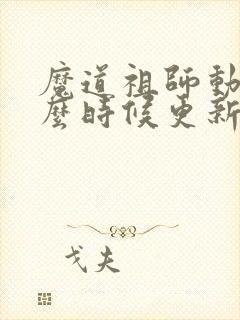 魔道祖師動
麼時候更新
戈夫